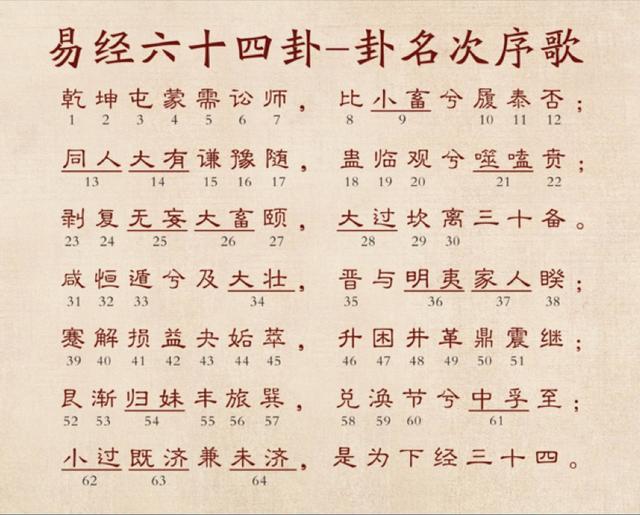 易经六十四卦-卦名次序歌
乾坤屯蒙需讼师，比小畜兮履泰否；
1 2 3 4 5 6 7 8 9 10 11 12
同人大有谦豫随，蛊临观兮噬嗑贲；
13 14 15 16 17 18 19 20 21 22
剥复无妄大畜颐，大过坎离三十备。
23 24 25 26 27 28 29 30
咸恒遁兮及大壮，晋与明夷家人睽；
31 32 33 34 35 36 37 38
蹇解损益夬姤萃，升困井革鼎震继；
39 40 41 42 43 44 45 46 47 48 49 50 51
艮渐归妹丰旅巽，兑涣节兮中孚至；
52 53 54 55 56 57 58 59 60 61
小过既济兼未济，是为下经三十四。
62 63 64